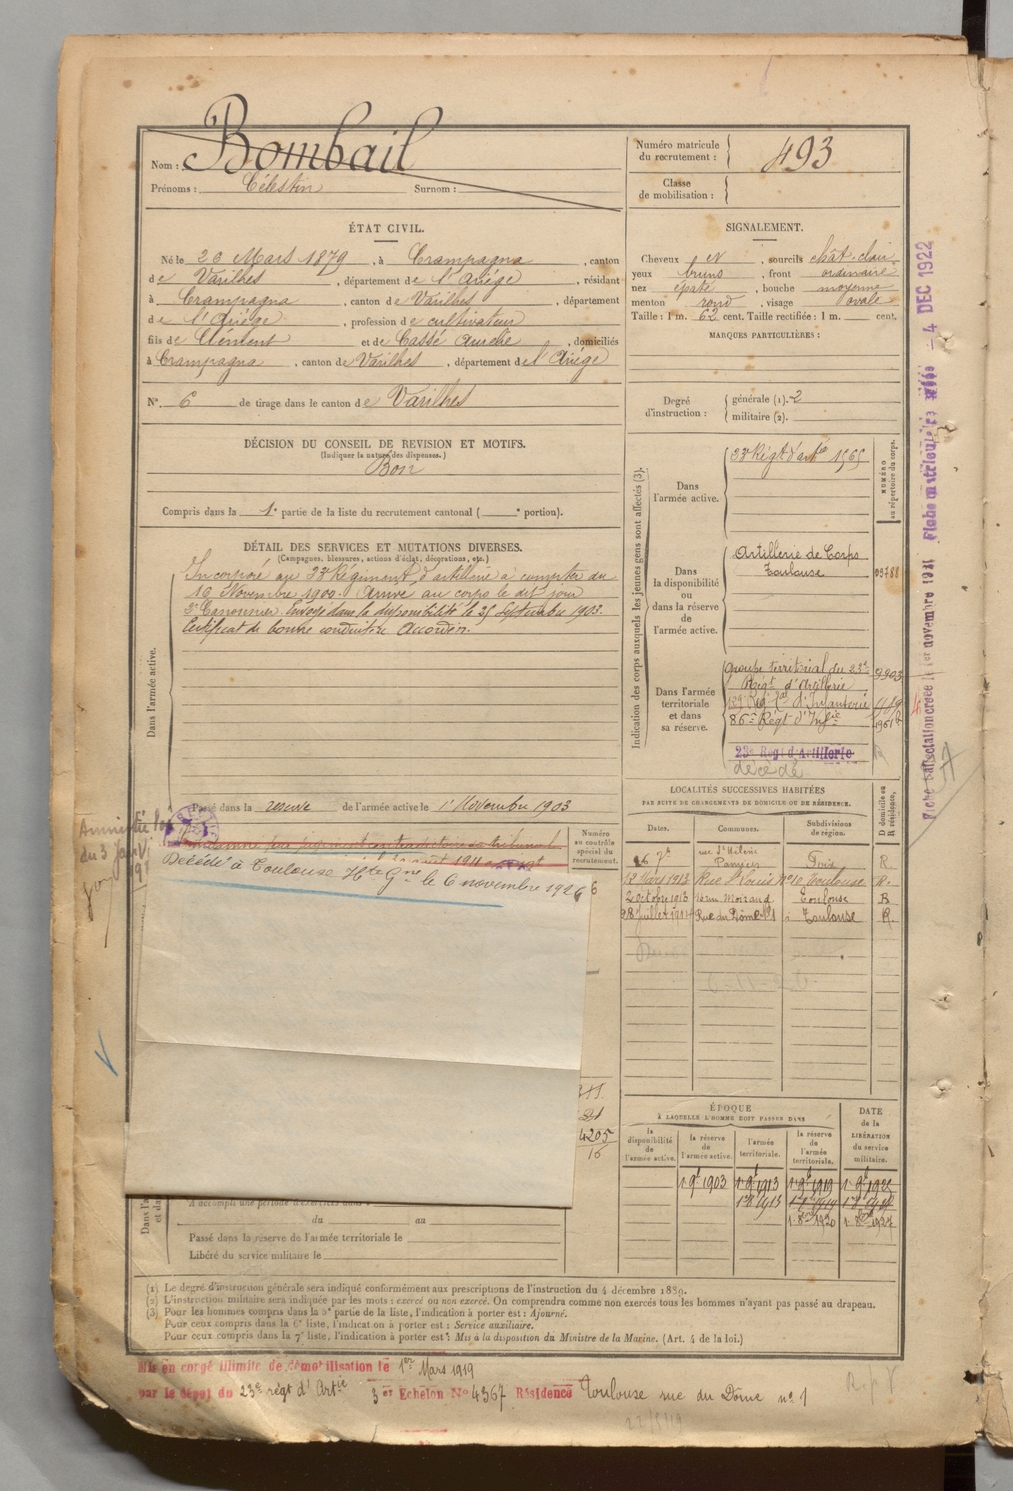 Nom : Bombail
Prénoms : Célestin Surnom :
Numéro matricule du recrutement : 493
Classe de mobilisation :
ÉTAT CIVIL.
Né le 23 Mars 1879, à Crampagna, canton
de Varilhes, département de l'Ariége, résidant
à Crampagna, canton de Varilhes, département
de l'Ariége, profession de cultivateur
fils de Clément et de Cassé Aurelie, domiciliés
à Crampagna, canton de Varilhes, département de l'Ariége
N° 6 de tirage dans le canton de Varilhes
SIGNALEMENT.
Cheveux et, sourcils chât. clair
yeux bruns, front ordinaire
nez épaté, bouche moyenne
menton rond, visage ovale
Taille : 1 m. 62 cent. Taille rectifiée : 1 m. cent.
MARQUES PARTICULIÈRES :
Degré d'instruction : générale (1). 2
militaire (2).
DÉCISION DU CONSEIL DE REVISION ET MOTIFS.
(Indiquer la nature des dispenses.)
Bon
Compris dans la 1e partie de la liste du recrutement cantonal ( e portion).
DÉTAIL DES SERVICES ET MUTATIONS DIVERSES.
(Campagnes, blessures, actions d'éclat, décorations, etc.)
Dans l'armée active.
Incorporé au 23e Régiment d'artillerie à compter du
16 Novembre 1900. Arrivé au corps le dit jour
2e Canonnier. Envoyé dans la disponibilité le 25 Septembre 1903.
Certificat de bonne conduite Accordé.
Passé dans la reserve de l'armée active le 1er Novembre 1903
Amnistié loi
du 3 janv.
Décédé à Toulouse Hte Gne le 6 novembre 1926
Numéro au contrôle spécial du recrutement.
4205
16
A accompli une période d'exercices dans
du au
Passé dans la réserve de l'armée territoriale le
Libéré du service militaire le
Indication des corps auxquels les jeunes gens sont affectés (3).
NUMÉRO au répertoire du corps.
Dans l'armée active.
23e Régt d'artie 1565
Dans la disponibilité ou dans la réserve de l'armée active.
Artillerie de Corps
Toulouse 03788
Dans l'armée territoriale et dans sa réserve.
Groupe territorial du 23e
Régt d'Artillerie 9903
139e Reg. Tal d'Infanterie
86e Régt d'Infie
23e Régt d'Artillerie
décédé
LOCALITÉS SUCCESSIVES HABITÉES
PAR SUITE DE CHANGEMENTS DE DOMICILE OU DE RÉSIDENCE.
Dates. Communes. Subdivisions de région. D domicile ou R résidence.
rue Ste Hélène
Pamiers Foix R.
12 Mars 1912 Rue St Louis n° 10 Toulouse R.
2 octobre 1913 Toulouse R
28 Juillet Rue du Dôme N° 1 à Toulouse R.
ÉPOQUE
À LAQUELLE L'HOMME DOIT PASSER DANS
la disponibilité de l'armée active. la réserve de l'armée active. l'armée territoriale. la réserve de l'armée territoriale. DATE de la LIBÉRATION du service militaire.
1 9bre 1903 1 9bre 1913 1 9bre 1919 1 9bre 1925
1 8bre 1920 1 8bre 1927
(1) Le degré d'instruction générale sera indiqué conformément aux prescriptions de l'instruction du 4 décembre 1889.
(2) L'instruction militaire sera indiquée par les mots : exercé ou non exercé. On comprendra comme non exercés tous les hommes n'ayant pas passé au drapeau.
(3) Pour les hommes compris dans la 5e partie de la liste, l'indication à porter est : Ajourné.
Pour ceux compris dans la 6e liste, l'indication à porter est : Service auxiliaire.
Pour ceux compris dans la 7e liste, l'indication à porter est : Mis à la disposition du Ministre de la Marine. (Art. 4 de la loi.)
Mis en congé illimité de démobilisation le 1er Mars 1919
par le dépôt du 23e régt d'Artie 3er Echelon N° 4367 Résidence Toulouse rue du Dôme n° 1
4 DEC 1922